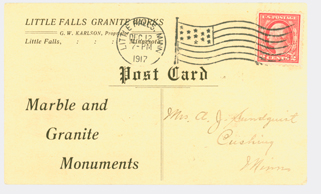 LITTLE FALLS GRANITE WORKS
G. W. KARLSON, Prop.
Little Falls, : : Minnesota
LITTLE FALLS, MINN.
DEC 12
7-PM
1917
U.S. POSTAGE
Post Card
Marble and
Granite
Monuments
Mrs. A. J. Sundquist
Cushing
Minn